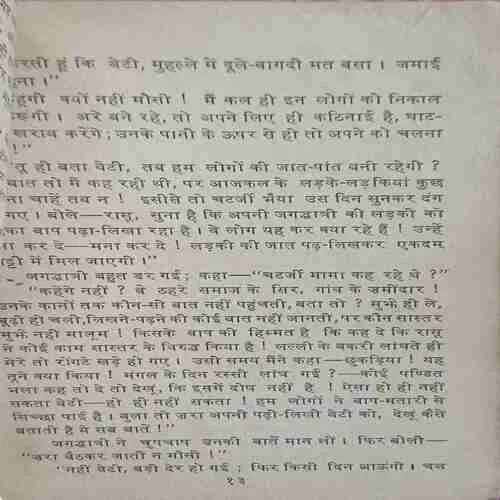 रसी हूं कि बेटी, मुहल्ले में दूले-बागदी मत बसा। जमाई
ुना।"
हूंगी क्यों नहीं मौसी! मैं कल ही इन लोगों को निकाल
रूंगी। अरे बने रहे, तो अपने लिए ही कठिनाई है, घाट-
खराब करेंगे; उनके पानी के ऊपर से ही तो अपने को चलना
!"
तू ही बता बेटी, तब हम लोगों की जात-पांत बनी रहेगी?
बात तो मैं कह रही थी, पर आजकल के लड़के-लड़कियां कुछ
ना चाहें तब न! इसीसे तो चटर्जी भैया उस दिन सुनकर दंग
गए। बोले—रासू, सुना है कि अपनी जगद्धात्री की लड़की को
का बाप पढ़ा-लिखा रहा है। वे लोग यह कर क्या रहे हैं! उन्हें
ना कर दे—मना कर दे! लड़की की जात पढ़-लिखकर एकदम
ट्टी में मिल जाएगी।"
जगद्धात्री बहुत डर गई; कहा—"चटर्जी मामा कह रहे थे?"
"कहेंगे नहीं? वे ठहरे समाज के सिर, गांव के ज़मींदार!
उनके कानों तक कौन-सी बात नहीं पहुंचती, बता तो? मुझे ही ले,
बूढ़ी हो चली, लिखने-पढ़ने की कोई बात नहीं जानती, पर कौन सास्तर
मुझे नहीं मालूम! किसके बाप की हिम्मत है कि कह दे कि रासू
ने कोई काम सास्तर के विरुद्ध किया है! लल्ली के बकरी लांघते ही
मेरे तो रोंगटे खड़े हो गए। उसी समय मैंने कहा—छुकड़िया! यह
तूने क्या किया! मंगल के दिन रस्सी लांघ गई?—कोई पण्डित
भला कह तो दे तो देखूं, कि इसमें दोष नहीं है! ऐसा हो ही नहीं
सकता बेटी—हो ही नहीं सकता! हम लोगों ने बाप-मतारी से
सिच्छा पाई है। बुला तो ज़रा अपनी पढ़ी-लिखी बेटी को, देखूं कैसे
बताती है ये सब बातें!"
जगद्धात्री ने चुपचाप उनकी बातें मान लीं। फिर बोली—
"ज़रा बैठकर जातीं न मौसी!"
'नहीं बेटी, बड़ी देर हो गई; फिर किसी दिन आऊंगी। चल
१३